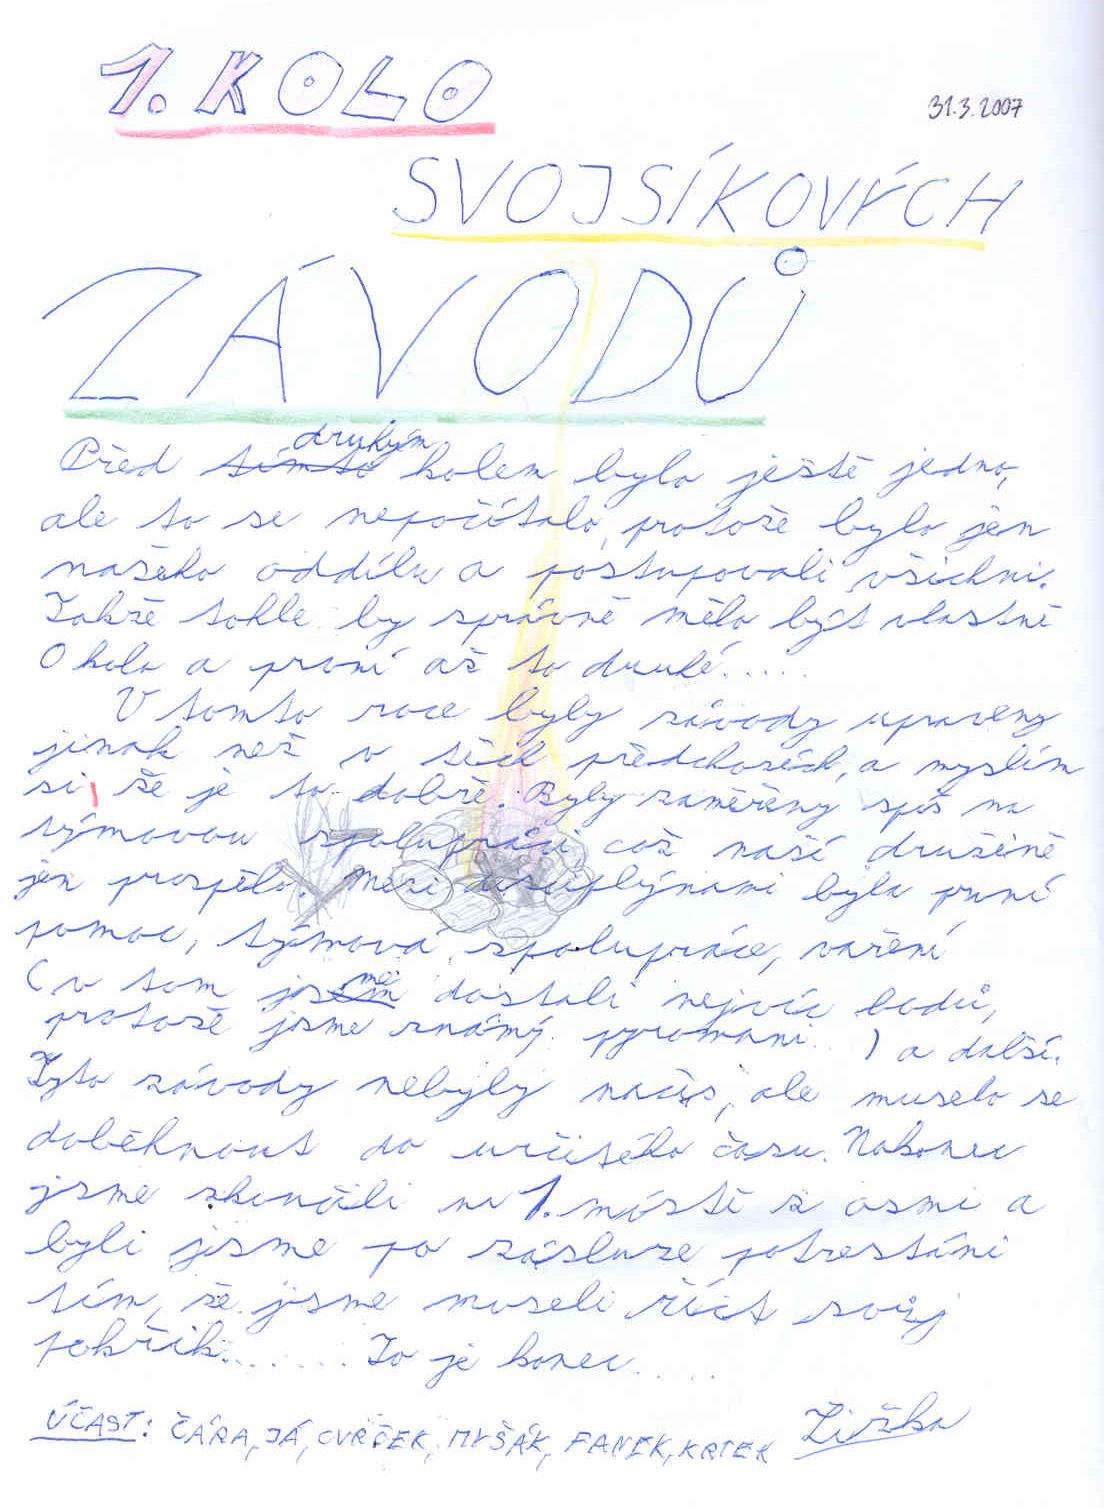 1. KOLO
31.3.2007
SVOJSÍKOVÝCH
ZÁVODŮ
druhým
Před tímto kolem bylo ještě jedno,
ale to se nepočítalo, protože bylo jen
našeho oddílu a postupovali všichni.
Takže tohle by správně mělo být vlastně
0 kolo a první až to druhé.....
V tomto roce byly závody upraveny
jinak než v těch předchozích, a myslím
si, že je to dobře. Byly zaměřeny spíš na
týmovou spolupráci což naší družině
jen prospělo. Mezi disciplýnami byla první
pomoc, týmová spolupráce, vaření
(v tom jsme dostali nejvíc bodů,
protože jsme známý pyromani...) a další.
Tyto závody nebyly načas, ale muselo se
doběhnout do určitého času. Nakonec
jsme skončili na 1. místě z osmi a
byli jsme po zásluze potrestáni
tím, že jsme museli říct svůj
pokřik....... To je konec.....
ÚČAST: ČÁRA, JÁ, CVRČEK, MYŠÁK, FANEK, KRTEK Žižka